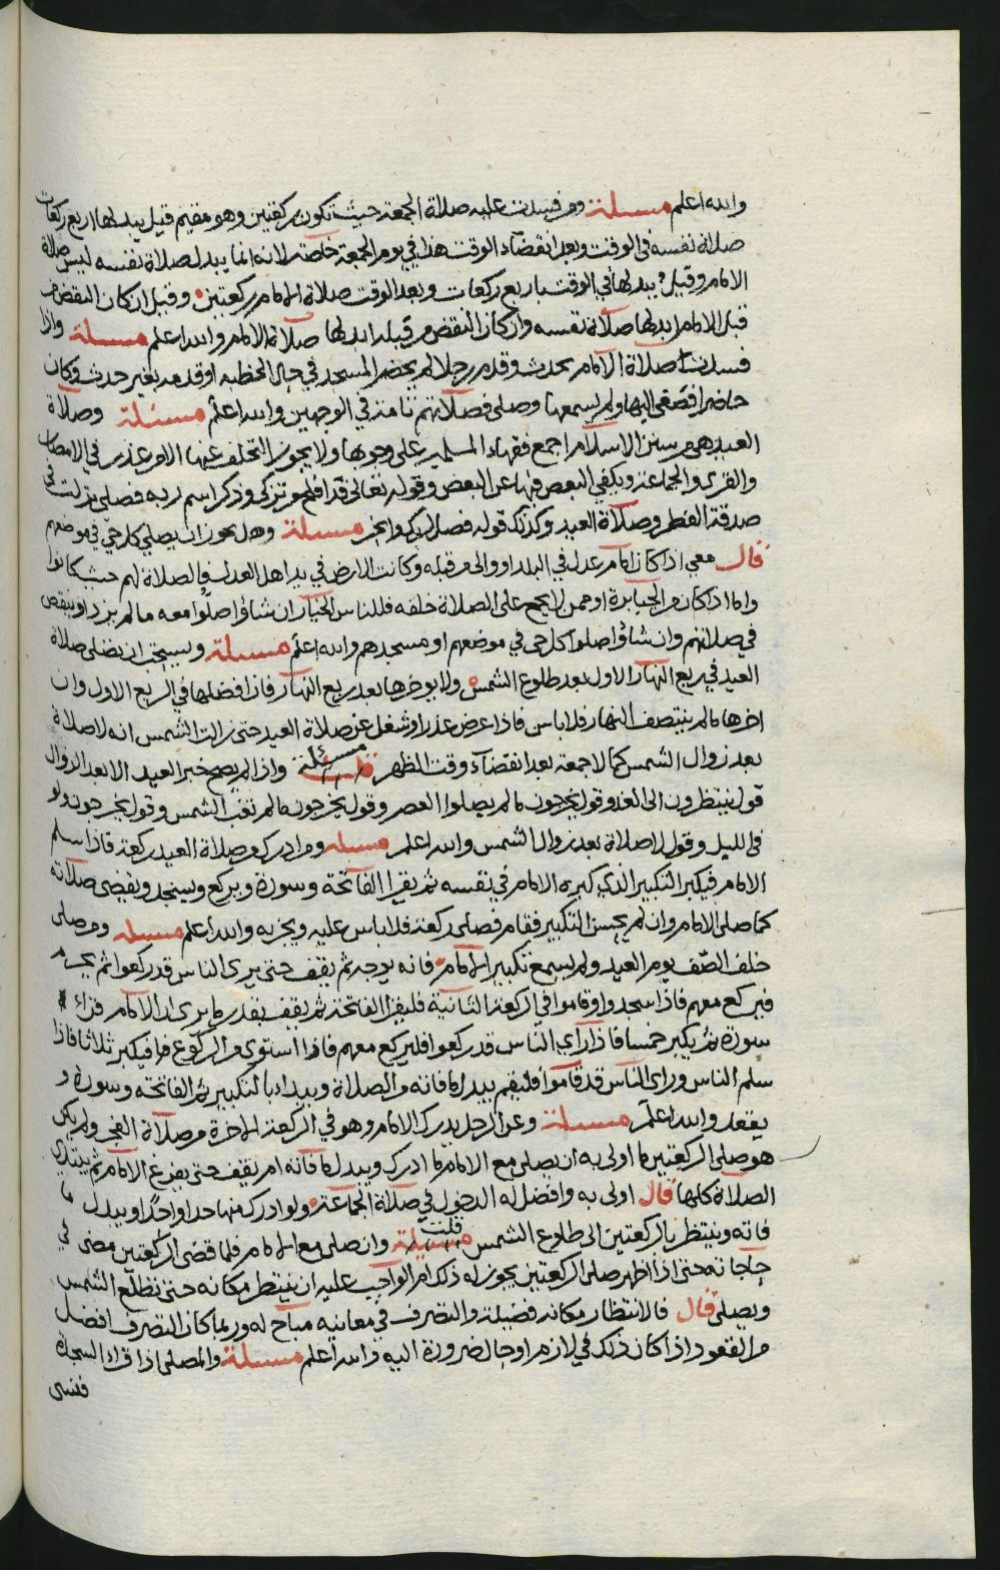 والله اعلم مسئلة ومن فسدت عليه صلاة الجمعة حيث تكون ركعتين وهو مقيم قيل يبدلها اربع ركعات
صلاة نفسه في الوقت وبعد انقضاء الوقت هذا في يوم الجمعة خاصة لانه انما يبدل صلاة نفسه ليس صلاة
الامام وقيل يبدلها في الوقت باربع ركعات وبعد الوقت صلاة الامام ركعتين وقيل ان كان النقض من
قبل الامام ابدلها صلاة نفسه وان كان النقض من قبله ابدلها صلاة الامام والله اعلم مسئلة واذا
فسدت صلاة الامام بحدث وقدم رجلا لم يحضر المسجد في حال الخطبة او قدمه بغير حدث وكان
حاضرا فصغى اليها ولم يسمعها وصلى فصلاتهم تامة في الوجهين والله اعلم مسئلة وصلاة
العيد هي من سنن الاسلام اجمع فقهاء المسلمين على وجوبها ولا يجوز التخلف عنها الا من عذر في الامصار
والقرى والجماعة ويكفي البعض فيها عن البعض وقوله تعالى قد افلح من تزكى وذكر اسم ربه فصلى نزلت في
صدقة الفطر وصلاة العيد وكذلك قوله فصل لربك وانحر مسئلة وهل يجوز ان يصلي كل حي في موضعهم
قال معي اذا كان امام عدل في البلد او والي من قبله وكانت الارض في يد اهل العدل فالصلاة لهم حيث كانوا
واما اذا كان من الجبابرة او ممن لا يجمع على الصلاة خلفه فللناس الخيار ان شاؤا صلوا معه ما لم يزد او ينقص
في صلاتهم وان شاؤا صلوا كل حي في موضعهم او مسجدهم والله اعلم مسئلة ويستحب ان تصلى صلاة
العيد في ربع النهار الاول بعد طلوع الشمس ولا يؤخرها بعد ربع النهار فان افضلها في الربع الاول وان
اخرها ما لم ينتصف النهار فلا باس فاذا عرض عذر او شغل عن صلاة العيد حتى زالت الشمس انه لا صلاة
بعد زوال الشمس كما لا جمعة بعد انقضاء وقت الظهر مسئلة قلت واذا لم يصح خبر العيد الا بعد الزوال
قول ينتظرون الى الغد وقول يخرجون ما لم يصلوا العصر وقول يخرجون ما لم تغب الشمس وقول يخرجون ولو
في الليل وقول لا صلاة بعد زوال الشمس والله اعلم مسئله ومن ادرك من صلاة العيد ركعة فاذا سلم
الامام فيكبر التكبير الذي كبره الامام في نفسه ثم يقرا الفاتحة وسورة ويركع ويسجد ويقضي صلاته
كما صلى الامام وان لم يحسن التكبير فقام فصلى ركعة فلا باس عليه ويجزيه والله اعلم مسئله ومن صلى
خلف الصف يوم العيد ولم يسمع تكبير الامام فانه يوجه ثم يقف حتى يرى الناس قد ركعوا ثم يحرم
فيركع معهم فاذا سجد وقاموا في الركعة الثانية فليقرا الفاتحة ثم يقف بقدر ما يرى ان الامام قراء
سورة ثم يكبر خمسا فاذا راي الناس قد ركعوا فليركع معهم فاذا استوى من الركوع فيكبر ثلاثا فاذا
سلم الناس وراى الناس قد قاموا فليقم يبدل ما فاته من الصلاة ويبدا بالتكبير ثم الفاتحه وسورة و
يقعد والله اعلم مسئلة وعن الرجل يدرك الامام وهو في الركعة الاخرة من صلاة الفجر ولم يكن
هو صلى الركعتين ما اولى به ان يصلي مع الامام ما ادرك ويبدل ما فاته ام يقف حتى يفرغ الامام ثم يبتدي
الصلاة كلها قال اولى به وافضل له الدخول في صلاة الجماعة ولو ادرك منها حدا واحدا ويبدل ما
فاته وينتظر بالركعتين الى طلوع الشمس مسئلة قلت وان صلى مع الامام فلما قضى الركعتين مضى في
حاجاته حتى اذا اظهر صلى الركعتين يجوز له ذلك ام الواجب عليه ان ينتظر مكانه حتى تطلع الشمس
ويصلي قال فالانتظار مكانه فضيلة والتصرف في معانيه مباح له وربما كان التصرف افضل
من القعود اذا كان ذلك في لازم او حال ضرورة اليه والله اعلم مسئلة والمصلي اذا قراء السجدة
فنسي